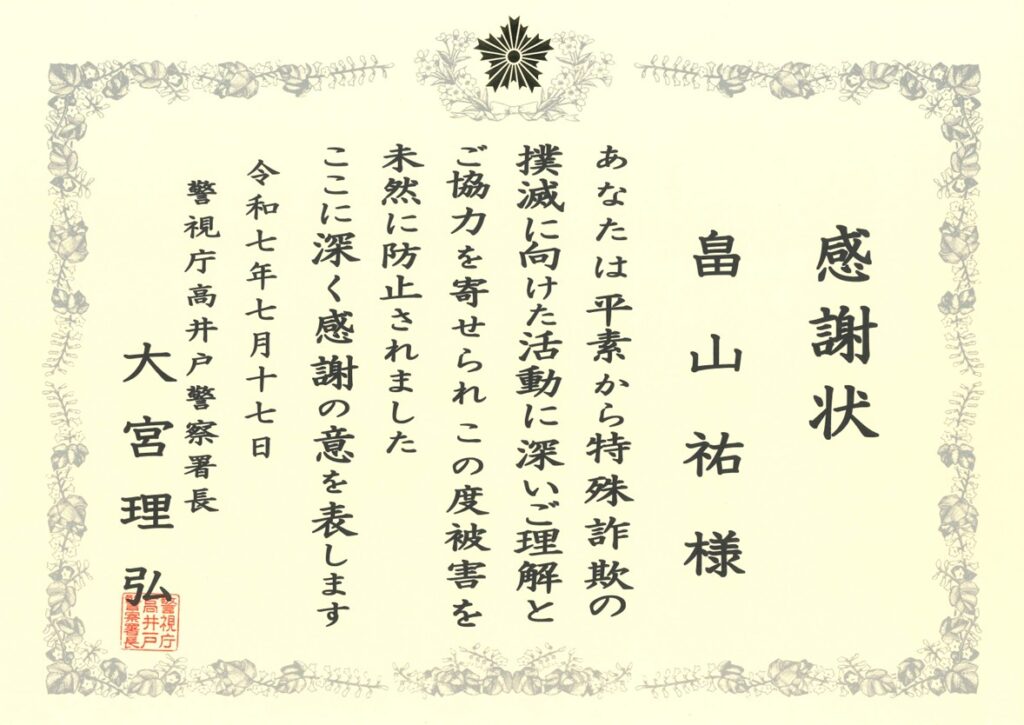 感謝状
畠山祐様
あなたは平素から特殊詐欺の
撲滅に向けた活動に深いご理解と
ご協力を寄せられ この度被害を
未然に防止されました
ここに深く感謝の意を表します
令和七年七月十七日
警視庁高井戸警察署長
大宮理弘
警視庁
高井戸
警察署長